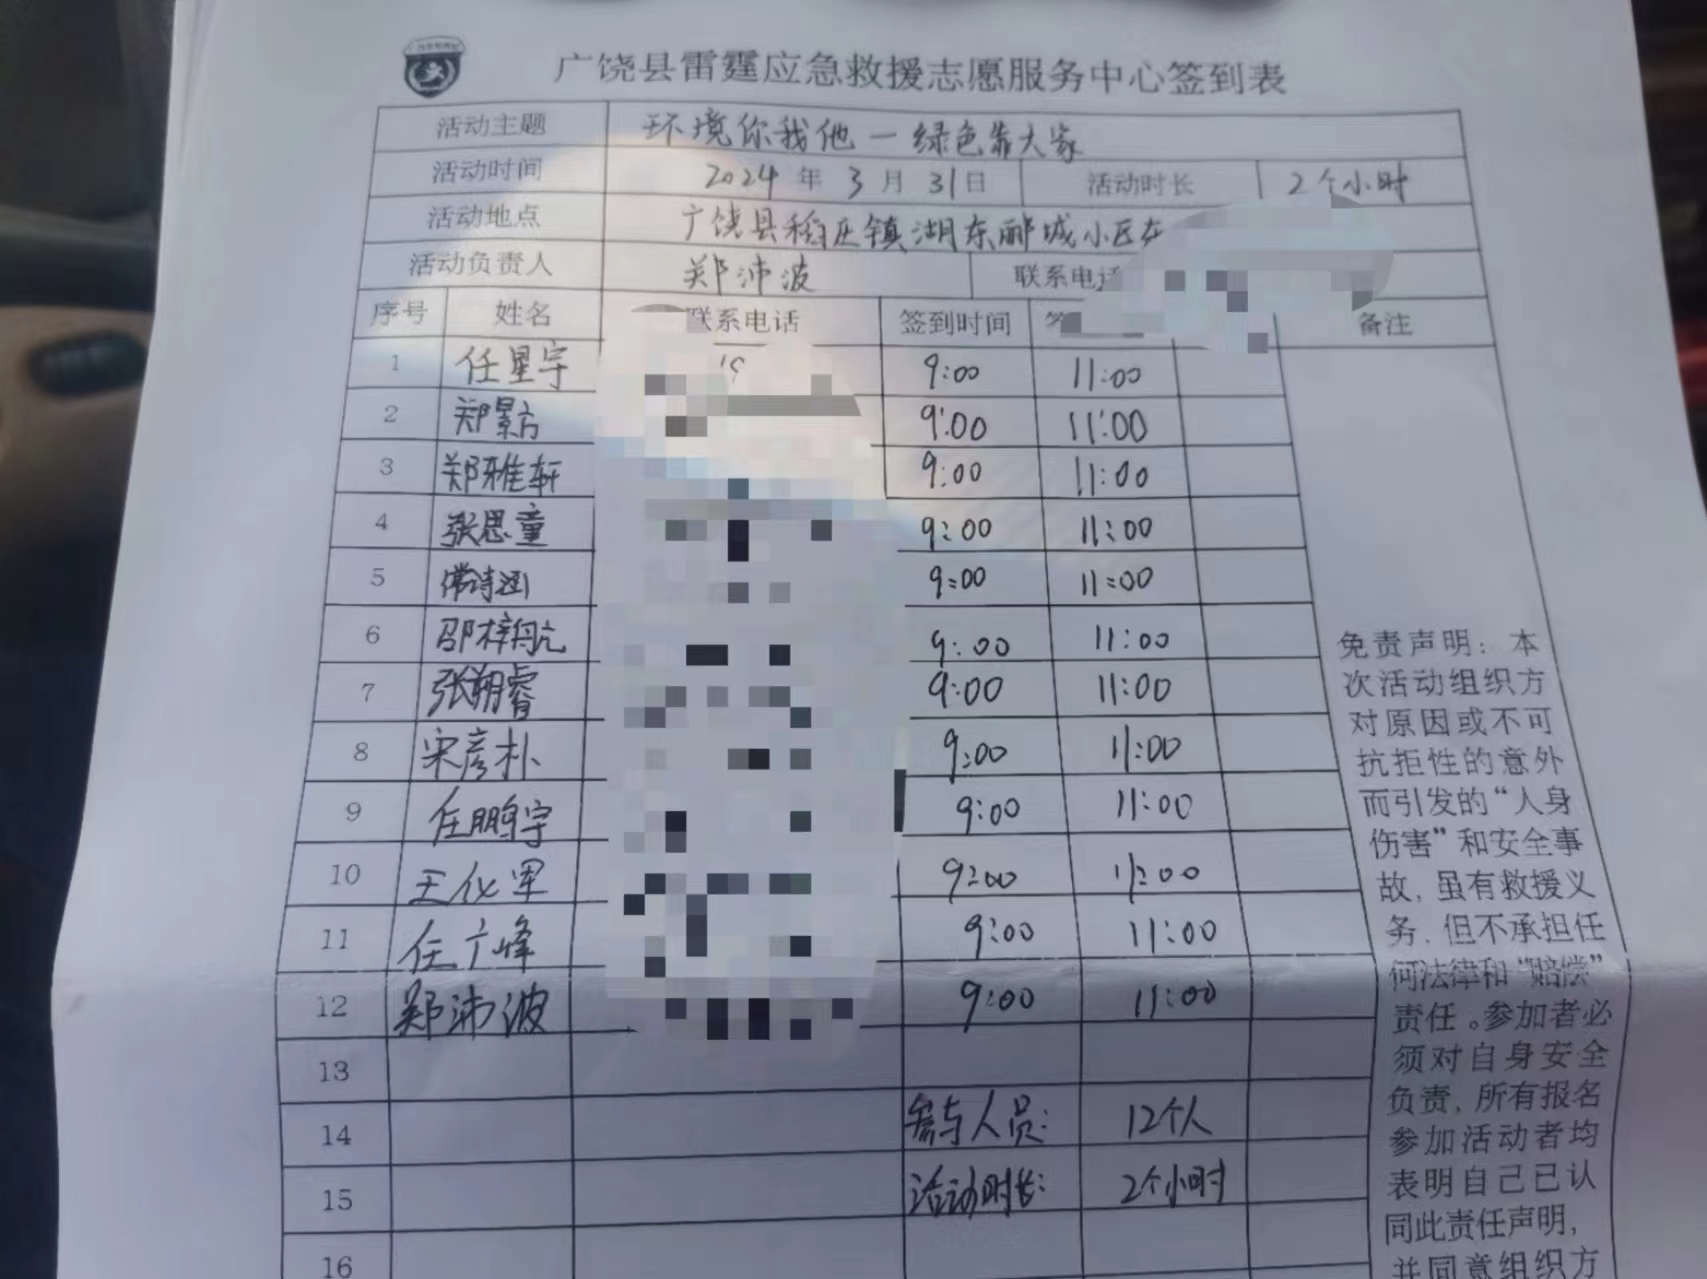 广饶县雷霆应急救援志愿服务中心签到表
活动主题 环境你我他一绿色靠大家
活动时间 2024 年 3 月 31 日 活动时长 2个小时
活动地点 广饶县稻庄镇湖东郦城小区
活动负责人 郑沛波 联系电话
序号 姓名 联系电话 签到时间 备注
1 任星宇 9:00 11:00
2 郑景方 9:00 11:00
3 郑雅轩 9:00 11:00
4 张思童 9:00 11:00
5 常诗涵 9:00 11:00
6 邵梓航 9:00 11:00
7 张朔睿 9:00 11:00
8 宋彦朴 9:00 11:00
9 任鹏宇 9:00 11:00
10 王仪军 9:00 11:00
11 任广峰 9:00 11:00
12 郑沛波 9:00 11:00
13
14 参与人员: 12个人
15 活动时长: 2个小时
16
免责声明：本
次活动组织方
对原因或不可
抗拒性的意外
而引发的“人身
伤害”和安全事
故，虽有救援义
务，但不承担任
何法律和“赔偿”
责任。参加者必
须对自身安全
负责，所有报名
参加活动者均
表明自己已认
同此责任声明，
并同意组织方